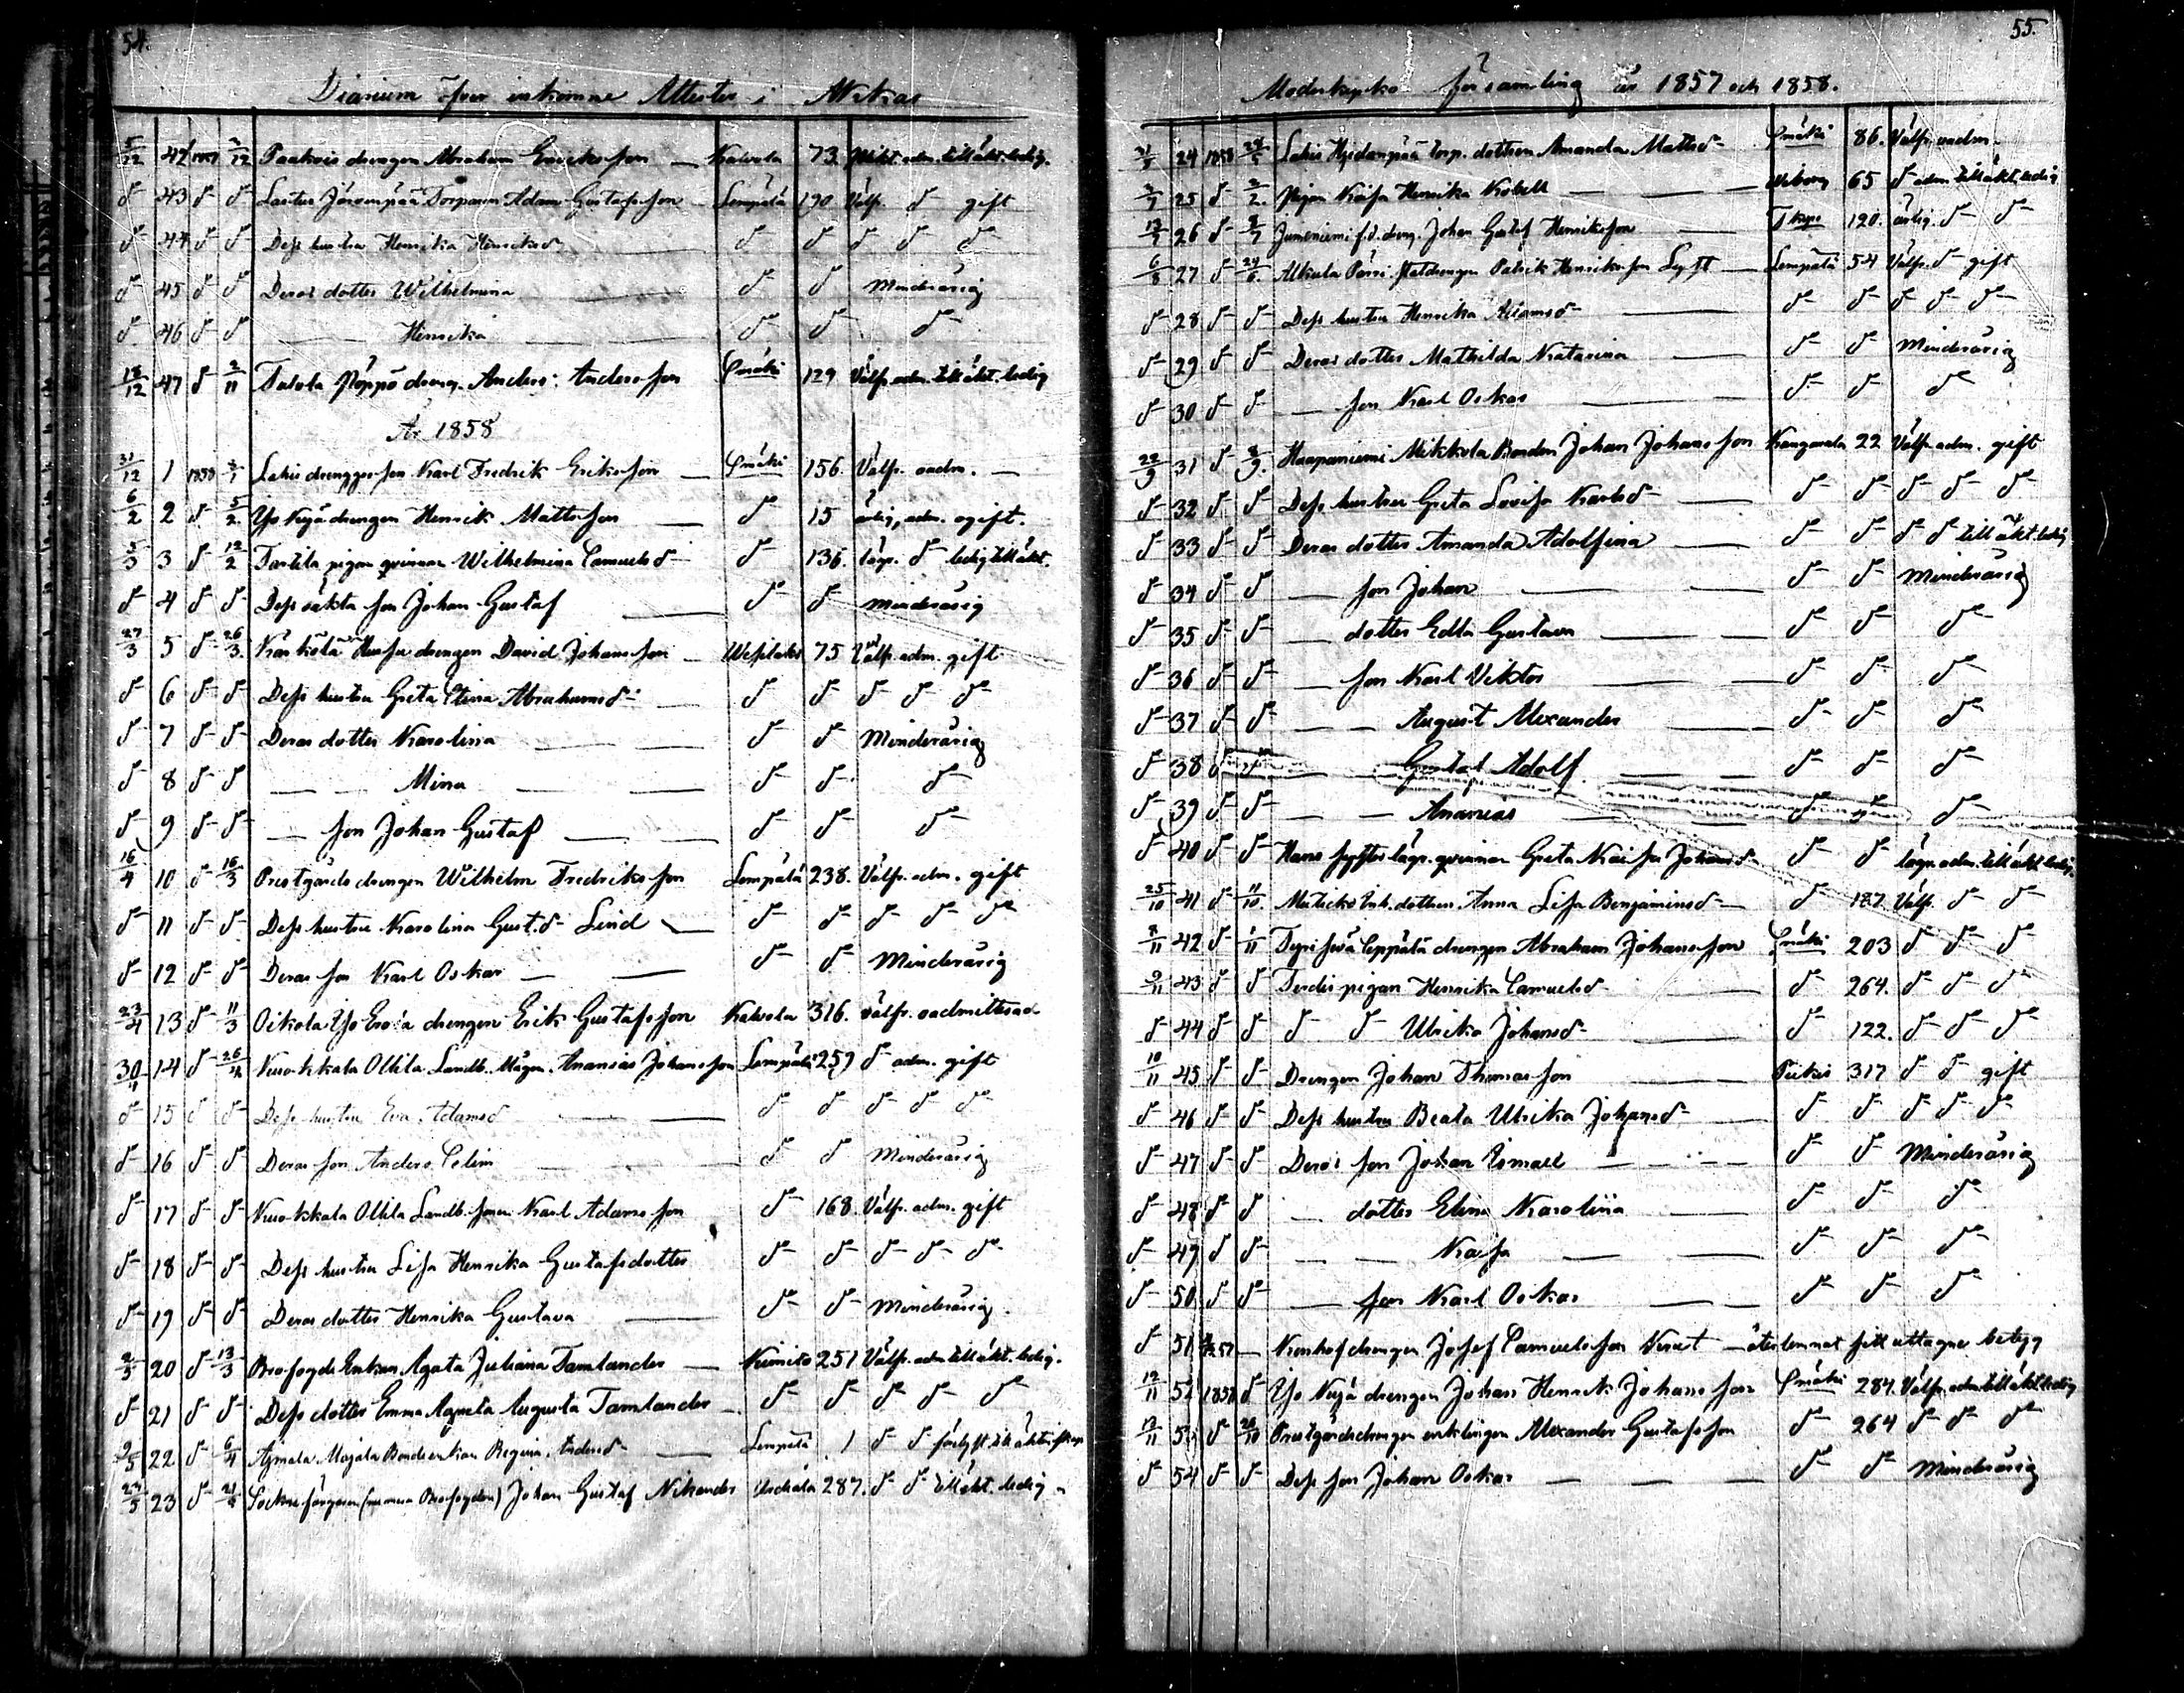 54.
Diarium öfver inkomne Attester i Akkas
5/12 42 1857 2/12 drengen Abraham Eriksson — Kalvola 73. adm. till äkt. ledig.
d 43 d d Järvenpää Torparen Adam Gustafsson Lempälä 190 Välfr. d gift
d 44 d d Dess hustru Henrika Henriksd d d d d d
d 45 d d Deras dotter Wilhelmina — d d Minderårig
d 46 d d — Henrika — d d d
12/12 47 d 2/11 dreng. Anders Andersson Urdiala 129 Välfr. adm. till äkt. ledig
År 1858
31/12 1 1858 2/1 Lahis Karl Fredrik Eriksson — 156. Välfr. oadm. —
6/2 2 d 5/2 Yso Nuijä drengen Henrik Mattsson — d 15 ärlig, adm. ogift.
5/3 3 d 12/2 qvinnan Wilhelmina Samuelsd — d 136. lägr. d ledig till äkt.
d 4 d d Dess oäkta son Johan Gustaf — d d minderårig
27/3 5 d 26/3. drengen David Johansson — Wesilaks 75 Välfr. adm. gift
d 6 d d Dess hustru Greta Stina Abrahamsd — d d d d d
d 7 d d Deras dotter Karolina — — d d Minderårig
d 8 d d — — Mina — — d d d
d 9 d d — son Johan Gustaf — — d d d
16/4 10 d 16/3 Prestgårds drengen Wilhelm Fredriksson Lempälä 238. Välfr. adm. gift
d 11 d d Dess hustru Karolina Gust.d Lind — d d d d d
d 12 d d Deras son Karl Oskar — — d d Minderårig
23/4 13 d 11/3 Oikola Yso drengen Erik Gustafsson Kalvola 316. välfr. oadmitterad
30/4 14 d 26/4 Kurokkala Ollila Landb. Mågen Ananias Johansson Lempälä 257 d adm. gift
d 15 d d Dess hustru Eva Adamsd — d d d d d
d 16 d d Deras son Anders — d d Minderårig
d 17 d d Kurokkala Ollila Landb. sonen Karl Adamsson d 168 Välfr. adm. gift
d 18 d d Dess hustru Lisa Henrika Gustafsdotter d d d d d
d 19 d d Deras dotter Henrika Gustava — d d Minderårig.
2/5 20 d 13/3 Brofogde Enkan Agata Juliana Tamlander — Kimito 251 Välfr. adm till äkt. ledig.
d 21 d d Dess dotter Emma Agneta Augusta Tamlander — d d d d d
9/5 22 d 6/4 Ajmala Majala Bondeenkan Regina Andersd — Lempälä 1 d d
22/5 23 d 21/4 Johan Gustaf Nikander Urdiala 287. d d till äkt. ledig
55.
Moderkyrko församling år 1857 och 1858.
21/5 24 1858 Lahis torp. dottren Amanda Mattsd 86. Välfr. oadm.
2/7 25 d 2/2. Pigan Kajsa Henrika — Wiborg 65 d adm. till äkt. ledig
13/7 26 d 2/7 f.d. dreng. Johan Gustaf Henriksson — 120. ärlig. d d
6/8 27 d 24/6. Alkula Statdrengen Patrik Henriksson — Lempälä 54 Välfr. d gift
d 28 d d Dess hustru Henrika Adamsd — d d d d d
d 29 d d Deras dotter Mathilda Katarina — d d Minderårig
d 30 d d — son Karl Oskar — — d d d
22/9 31 d 2/9. Haapaniemi Mikkola Bonden Johan Johansson Kangasala 22 Välfr. adm. gift
d 32 d d Dess hustru Greta Lovisa Karlsd — d d d d d
d 33 d d Deras dotter Amanda Adolfina — d d d d till äkt. ledig
d 34 d d — son Johan — — d d Minderårig
d 35 d d — dotter Edla Gustava — — d d d
d 36 d d — son Karl Viktor — — d d d
d 37 d d — — August Alexander — d d d
d 38 d d — — Gustaf Adolf — — d d d
d 39 d d — — Ananias — — d d d
d 40 d d Hans syster lägr. qvinnan Greta Kajsa Johansd d d lägr. adm. till äkt. ledig.
25/10 41 d 11/10. Inh. dottren Anna Lisa Benjaminsd — d 187 Välfr. d d
7/11 42 d 1/11 Leppälä drengen Abraham Johansson 203 d d d
9/11 43 d d pigan Henrika Samuelsd — d 264. d d d
d 44 d d d d Ulrika Johansd — d 122. d d d
10/11 45 d d Drengen Johan Thomasson — 317 d d gift
d 46 d d Dess hustru Beata Ulrika Johansd — d d d d d
d 47 d d Deras son Johan Ismael — — — d d Minderårig
d 48 d d — dotter Elina Karolina — d d d
d 49 d d — — Kajsa — — d d d
d 50 d d — son Karl Oskar — — d d d
d 51 — drengen Josef Samuelsson — återlemnat sitt uttagne betyg
12/11 52 1858 d Yso Nuijä drengen Johan Henrik Johansson 284. Välfr. adm till äkt ledig
12/11 53 d 26/10 Prestgårdsdrengen enklingen Alexander Gustafsson d 264 d d d
d 54 d d Dess son Johan Oskar — — d d Minderårig